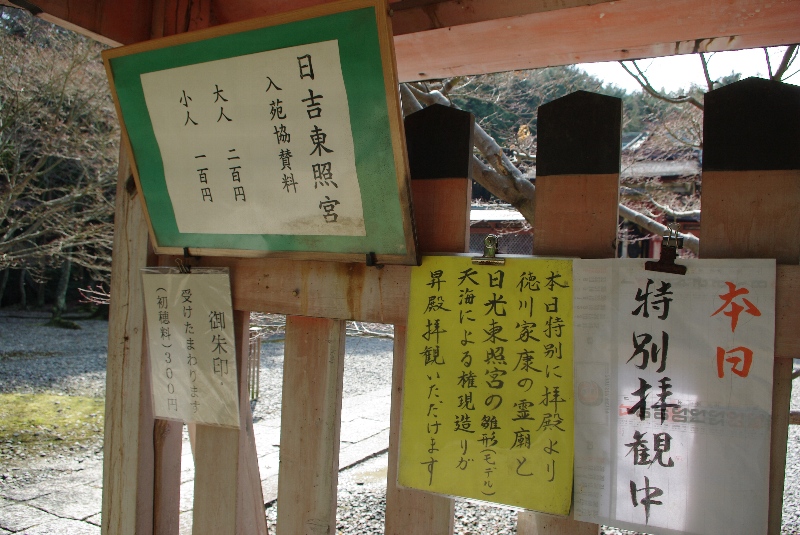 日吉東照宮
入苑協賛料
大人 二百円
小人 一百円
御朱印
受けたまわります
(初穂料)300円
本日特別に拝殿より
徳川家康の霊廟と
日光東照宮の雛形(モデル)
天海による権現造りが
昇殿拝観いただけます
本日
特別拝観中